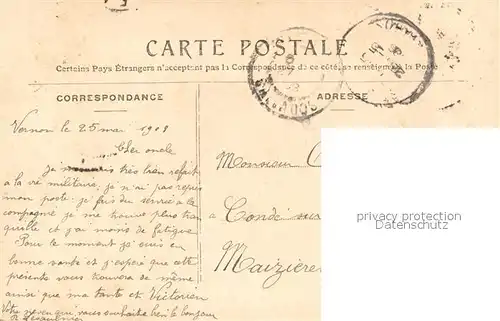 CARTE POSTALE
Certains Pays Étrangers n'acceptant pas la Correspondance de ce côté, se renseigner à la Poste
CORRESPONDANCE
ADRESSE
Vernon le 25 mai 1908
Cher oncle
Je très bien refait
a la vie militaire, je n'ai pas repris
mon poste, je fais du service a la
compagnie je me trouve plus tran
quille et j'ai moins de fatigue
Pour le moment je suis en
bonne santé et j'espère que cette
présente vous trouvera de même
ainsi que ma tante et Victorien
Votre neveu qui vous souhaite bien le bonjour
Monsieur
a Condé sur
Maizière
privacy protection
Datenschutz